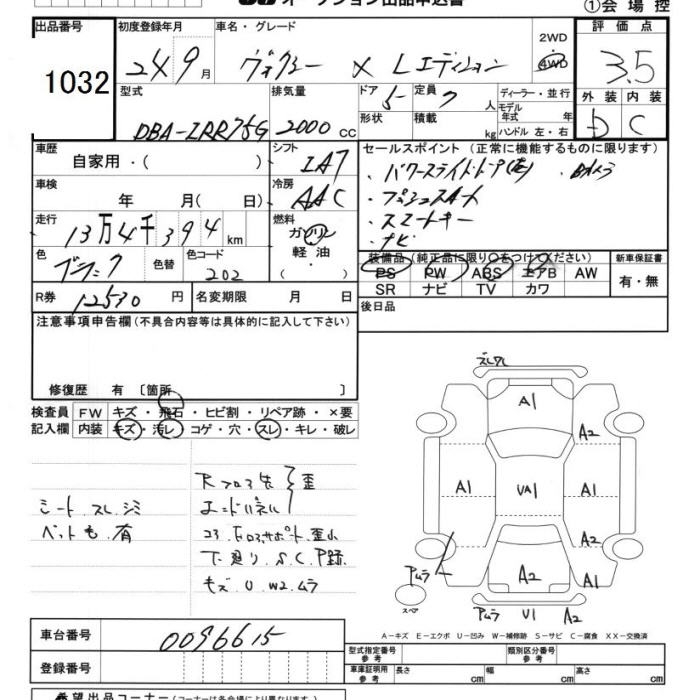 オークション出品申込書
①会場控
出品番号 初度登録年月 車名・グレード 評価点
1032 24 9月 ヴォクシー X Lエディション 2WD 4WD 3.5
型式 排気量 ドア 5 定員 7人 ディーラー・並行 外装 内装
モデル年式 年
DBA-ZRR75G 2000cc 形状 積載 kg ハンドル 左・右 D C
車歴 自家用・( ) シフト IA7 セールスポイント(正常に機能するものに限ります)
・パワースライドドア(左)
車検 年 月( 日) 冷房 AAC ・プッシュスタート
・スマートキー
走行 13万4千394km 燃料 ガソリン ・ナビ
軽油
・( )
色 ブラック 色替 色コード 202 装備品(純正品に限り○をつけてください) 新車保証書
PS PW ABS エアB AW 有・無
SR ナビ TV カワ
R券 12530円 名変期限 月 日 後日品
注意事項申告欄(不具合内容等は具体的に記入して下さい)
修復歴 有 〔箇所 〕
検査員記入欄 FW キズ・飛石・ヒビ割・リペア跡・×要
内装 キズ・汚レ・コゲ・穴・スレ・キレ・破レ
シート.スレ.シミ
ペット毛.有
エンドパネル 歪
下廻り.S.C.P跡.
キズ.U.W2.ムラ
A1
A2
A1 UA1 A1
A2
A2 A1
スペア
U1 A2
A-キズ E-エクボ U-凹み W-補修跡 S-サビ C-腐食 XX-交換済
車台番号 0096615 型式指定番号 参考 類別区分番号 参考
登録番号 車庫証明用 参考 長さ cm 幅 cm 高さ cm
希望出品コーナー